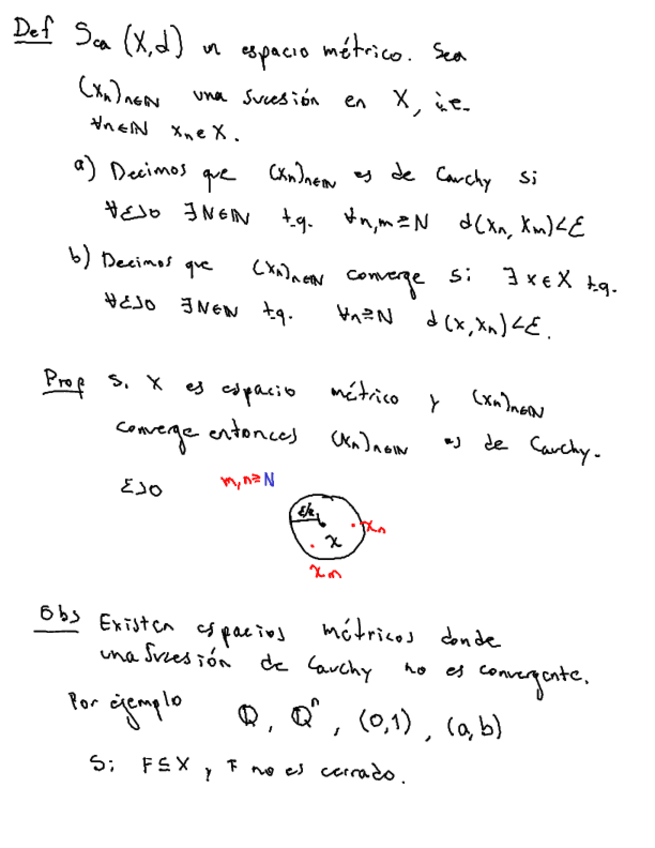 Def Sea (X,d) un espacio métrico. Sea
(xₙ)ₙ∈ℕ una sucesión en X, i.e.
∀n∈ℕ xₙ∈X.
a) Decimos que (xₙ)ₙ∈ℕ es de Cauchy si
∀ε>0 ∃N∈ℕ t.q. ∀n,m≥N d(xₙ, xₘ)<ε
b) Decimos que (xₙ)ₙ∈ℕ converge si ∃x∈X t.q.
∀ε>0 ∃N∈ℕ t.q. ∀n≥N d(x,xₙ)<ε.
Prop Si X es espacio métrico y (xₙ)ₙ∈ℕ
converge entonces (xₙ)ₙ∈ℕ es de Cauchy.
ε>0 m,n≥N
ε/2
x xₙ
xₘ
Obs Existen espacios métricos donde
una sucesión de Cauchy no es convergente.
Por ejemplo ℚ, ℚⁿ, (0,1), (a,b)
Si F⊆X y F no es cerrado.